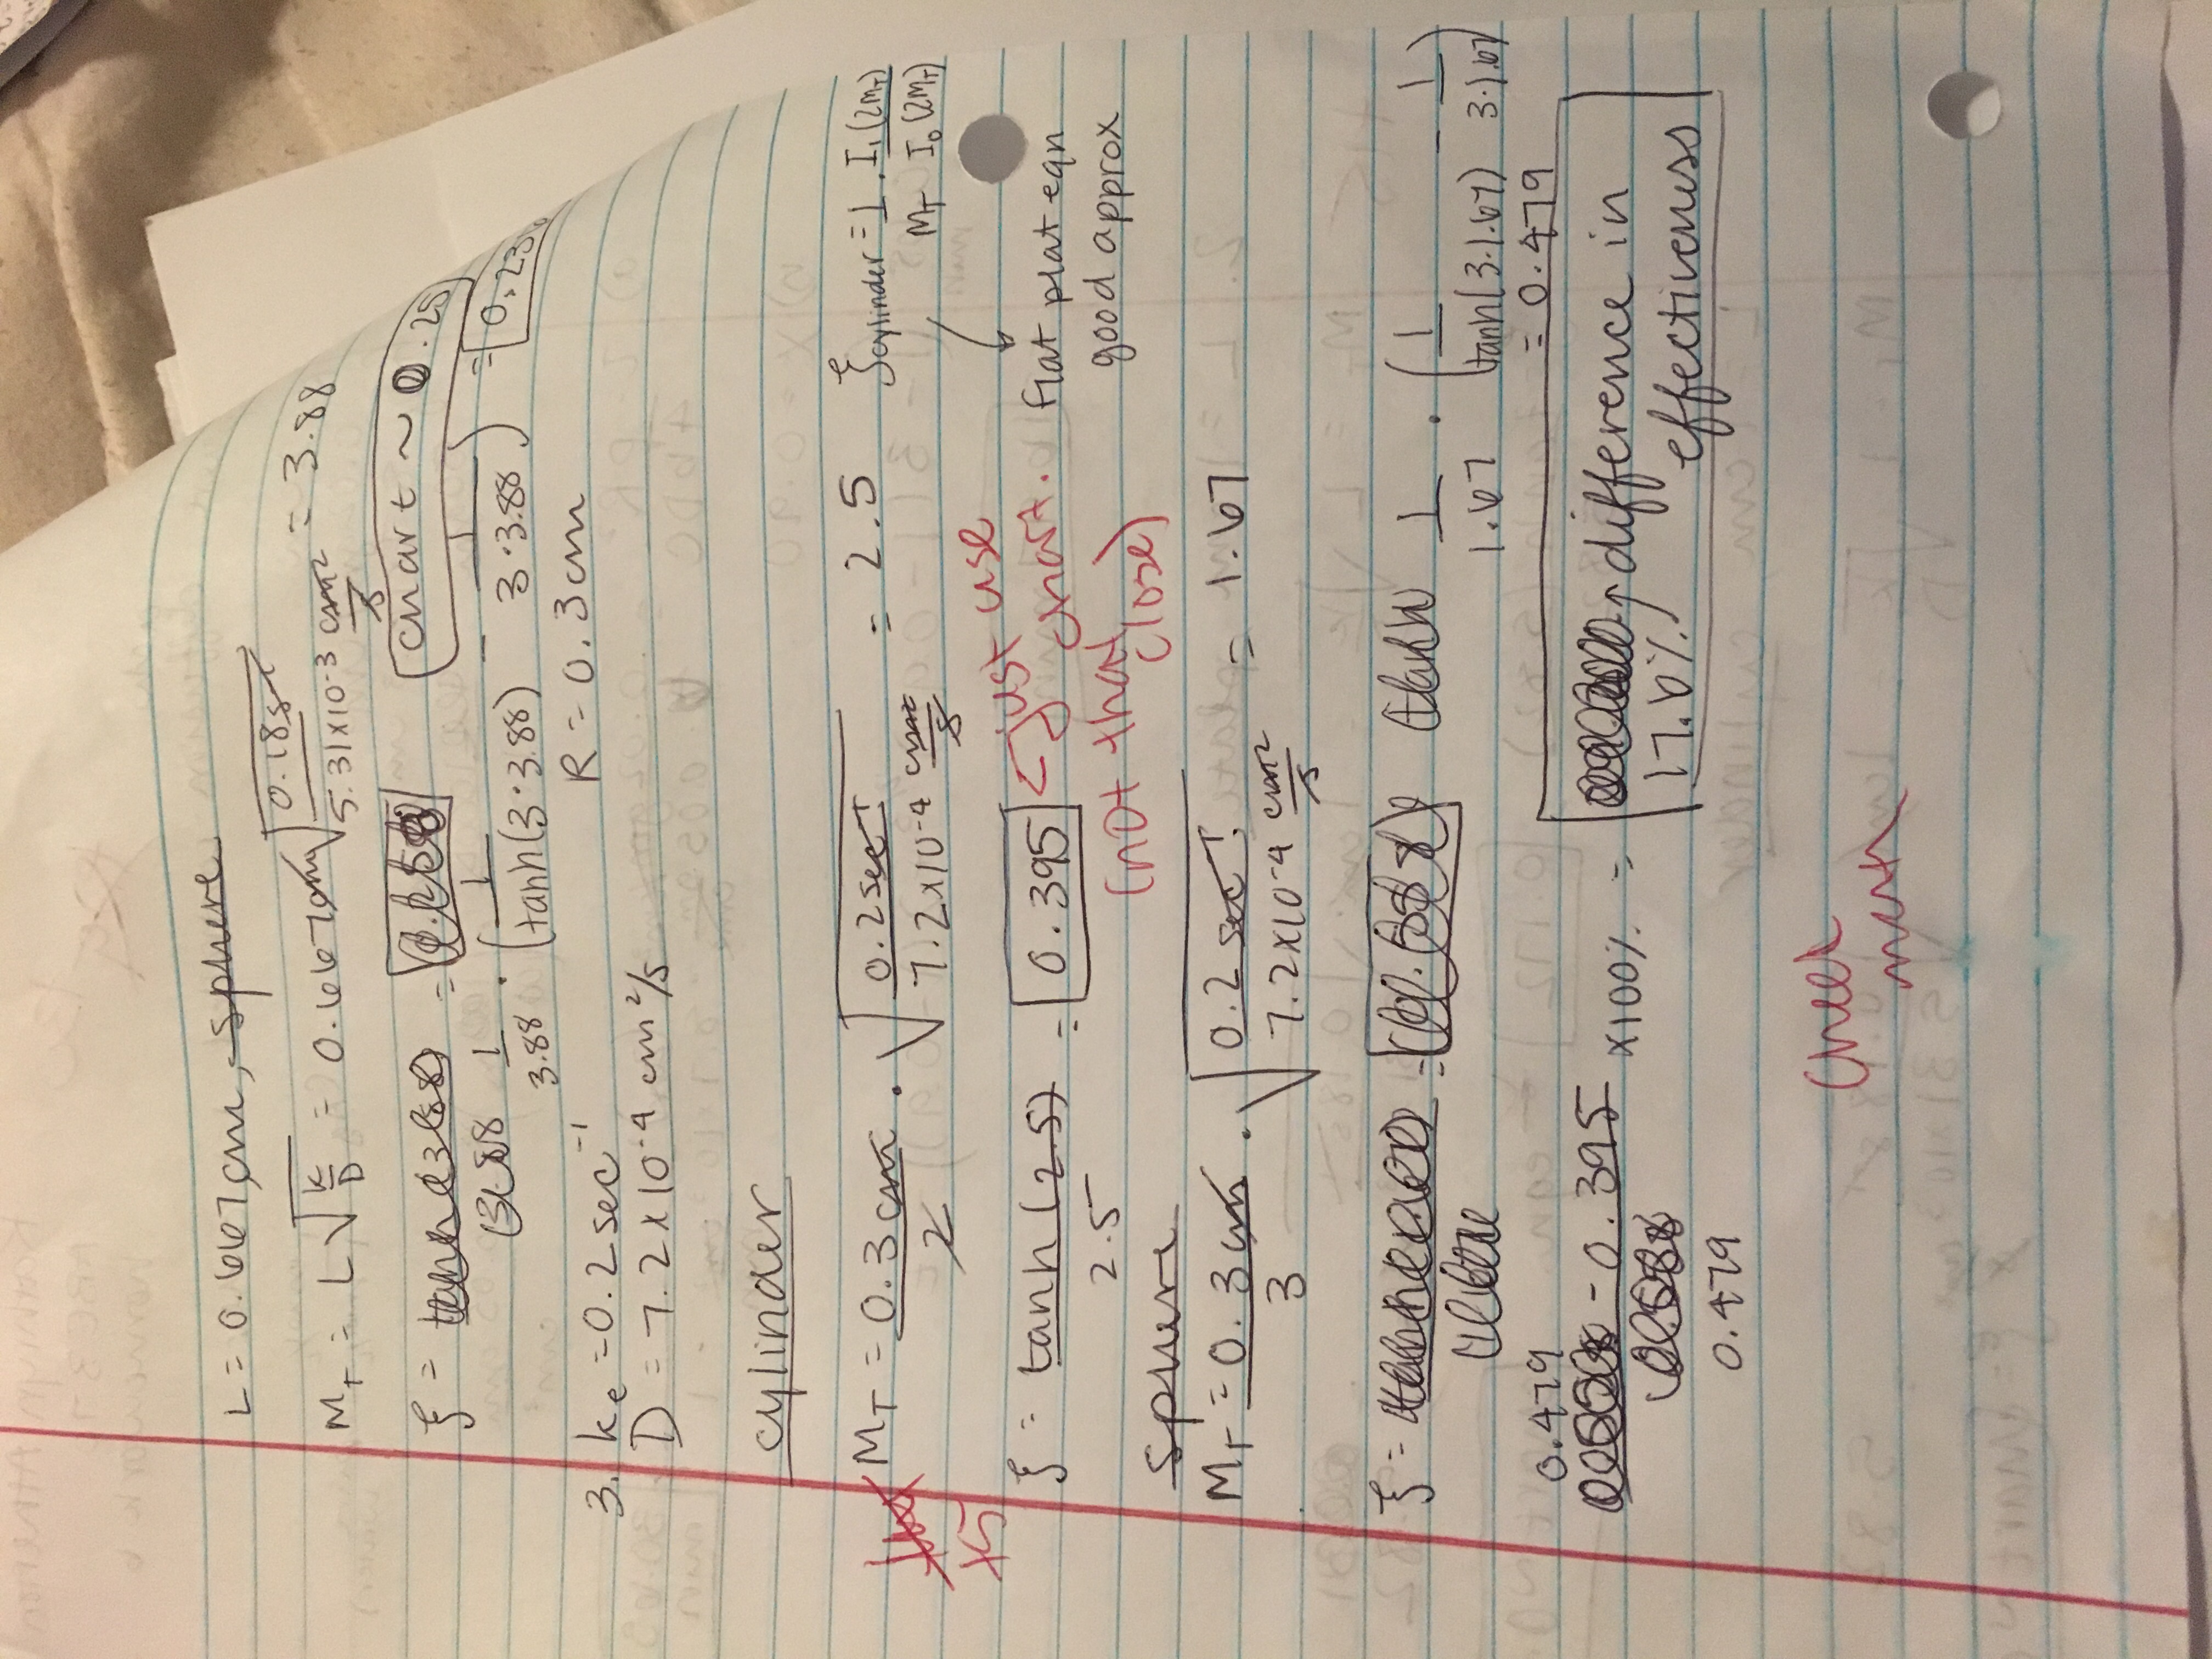 L = 0.667 cm, sphere
M_T = L √(k/D) = 0.667 cm √(0.18 s⁻¹ / 5.31x10⁻³ cm²/s) = 3.88
ξ = = chart ~ 0.25
1/3.88 · (1/tanh(3·3.88) - 1/3·3.88) = 0.23
3. ke = 0.2 sec⁻¹ R = 0.3 cm
D = 7.2 x 10⁻⁴ cm²/s
cylinder
M_T = 0.3 cm/2 · √(0.2 sec⁻¹ / 7.2x10⁻⁴ cm²/s) = 2.5 ξcylinder = 1/M_T · I₁(2M_T)/I₀(2M_T)
+5
ξ = tanh(2.5)/2.5 = 0.395 ← just use chart.
(not that close)
flat plat eqn
good approx
sphere
M_T = 0.3 cm/3 · √(0.2 sec⁻¹ / 7.2x10⁻⁴ cm²/s) = 1.67
ξ = 1/1.67 · (1/tanh(3·1.67) - 1/3·1.67)
= 0.479
0.479 - 0.395 / 0.479 x100% = 17.6% difference in
effectiveness
Check
math